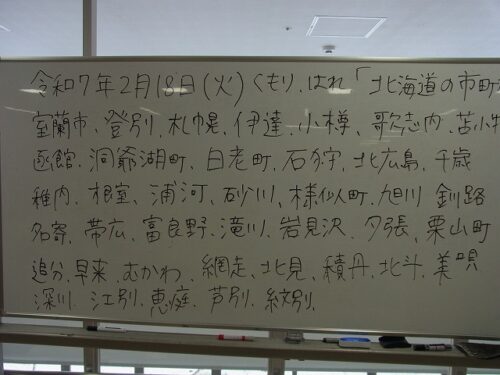 令和7年2月18日(火)くもり、はれ「北海道の市町
室蘭市、登別、札幌、伊達、小樽、歌志内、苫小牧
函館、洞爺湖町、白老町、石狩、北広島、千歳
稚内、根室、浦河、砂川、様似町、旭川 釧路
名寄、帯広、富良野、滝川、岩見沢、夕張、栗山町
追分、早来、むかわ、網走、北見、積丹、北斗、美唄
深川、江別、恵庭、芦別、紋別、